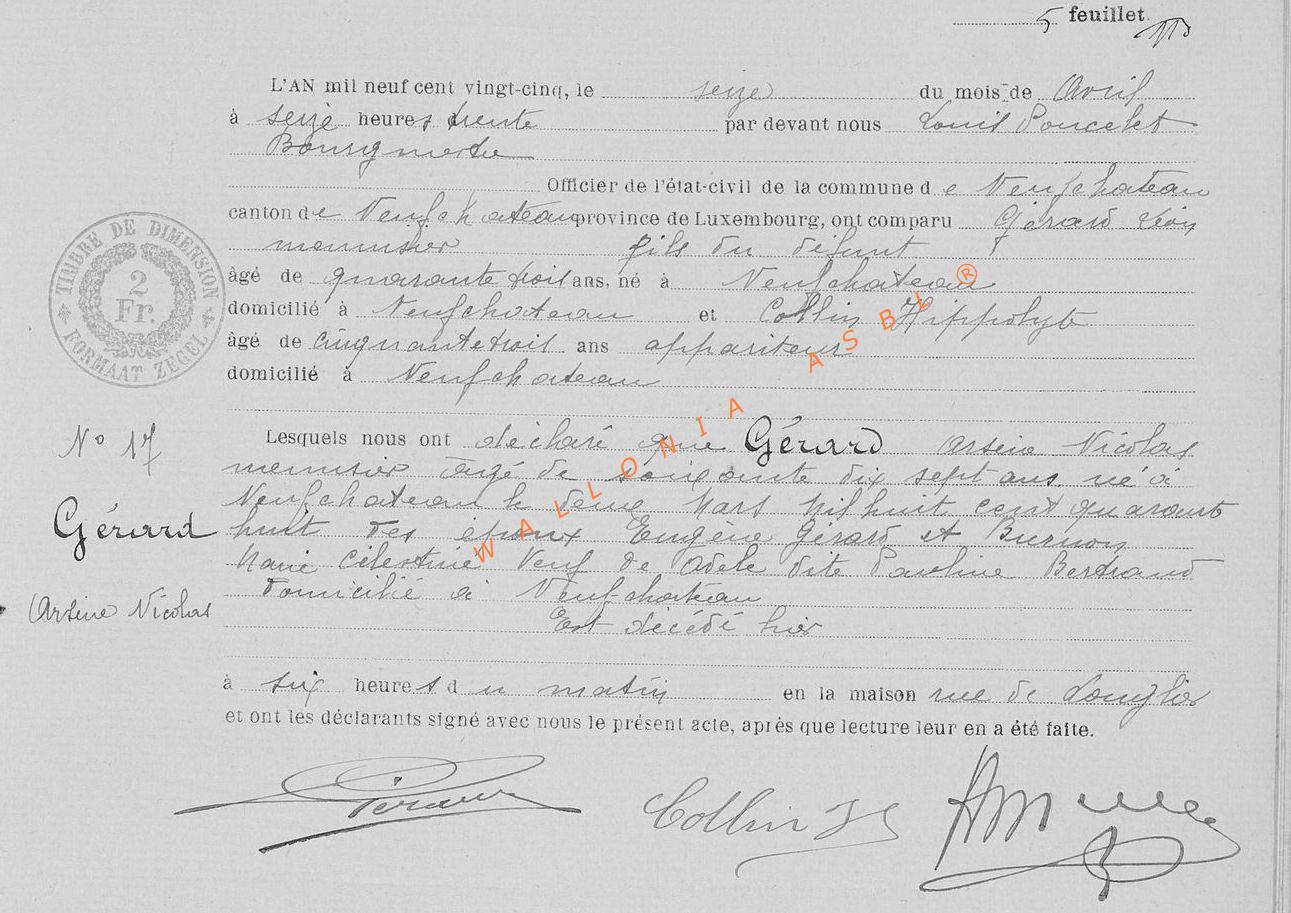 5 feuillet
L'AN mil neuf cent vingt-cinq, le seize du mois de Avril
à seize heures trente par devant nous Louis Poncelet
Bourgmestre
Officier de l'état-civil de la commune de Neufchateau
canton de Neufchateau province de Luxembourg, ont comparu Gérard Léon
menuisier fils du défunt
âgé de quarante trois ans, né à Neufchateau
domicilié à Neufchateau et Collin Hippolyte
âgé de cinquante trois ans appariteur
domicilié à Neufchateau
TIMBRE DE DIMENSION
2
Fr.
FORMAAT ZEGEL
N° 17
Gérard
Arsène Nicolas
Lesquels nous ont déclaré que Gérard Arsène Nicolas
menuisier âgé de soixante dix sept ans né à
Neufchateau le Mars Mil huit cent quarante
huit des époux Eugène Gérard et Burnon
Marie Célestine Veuf de Adèle dite Pauline Bertrand
domicilié à Neufchateau
Est décédé hier
à six heures du matin en la maison rue de Longlier
et ont les déclarants signé avec nous le présent acte, après que lecture leur en a été faite.
Gérard Collin
WALLONIA ASBL ®